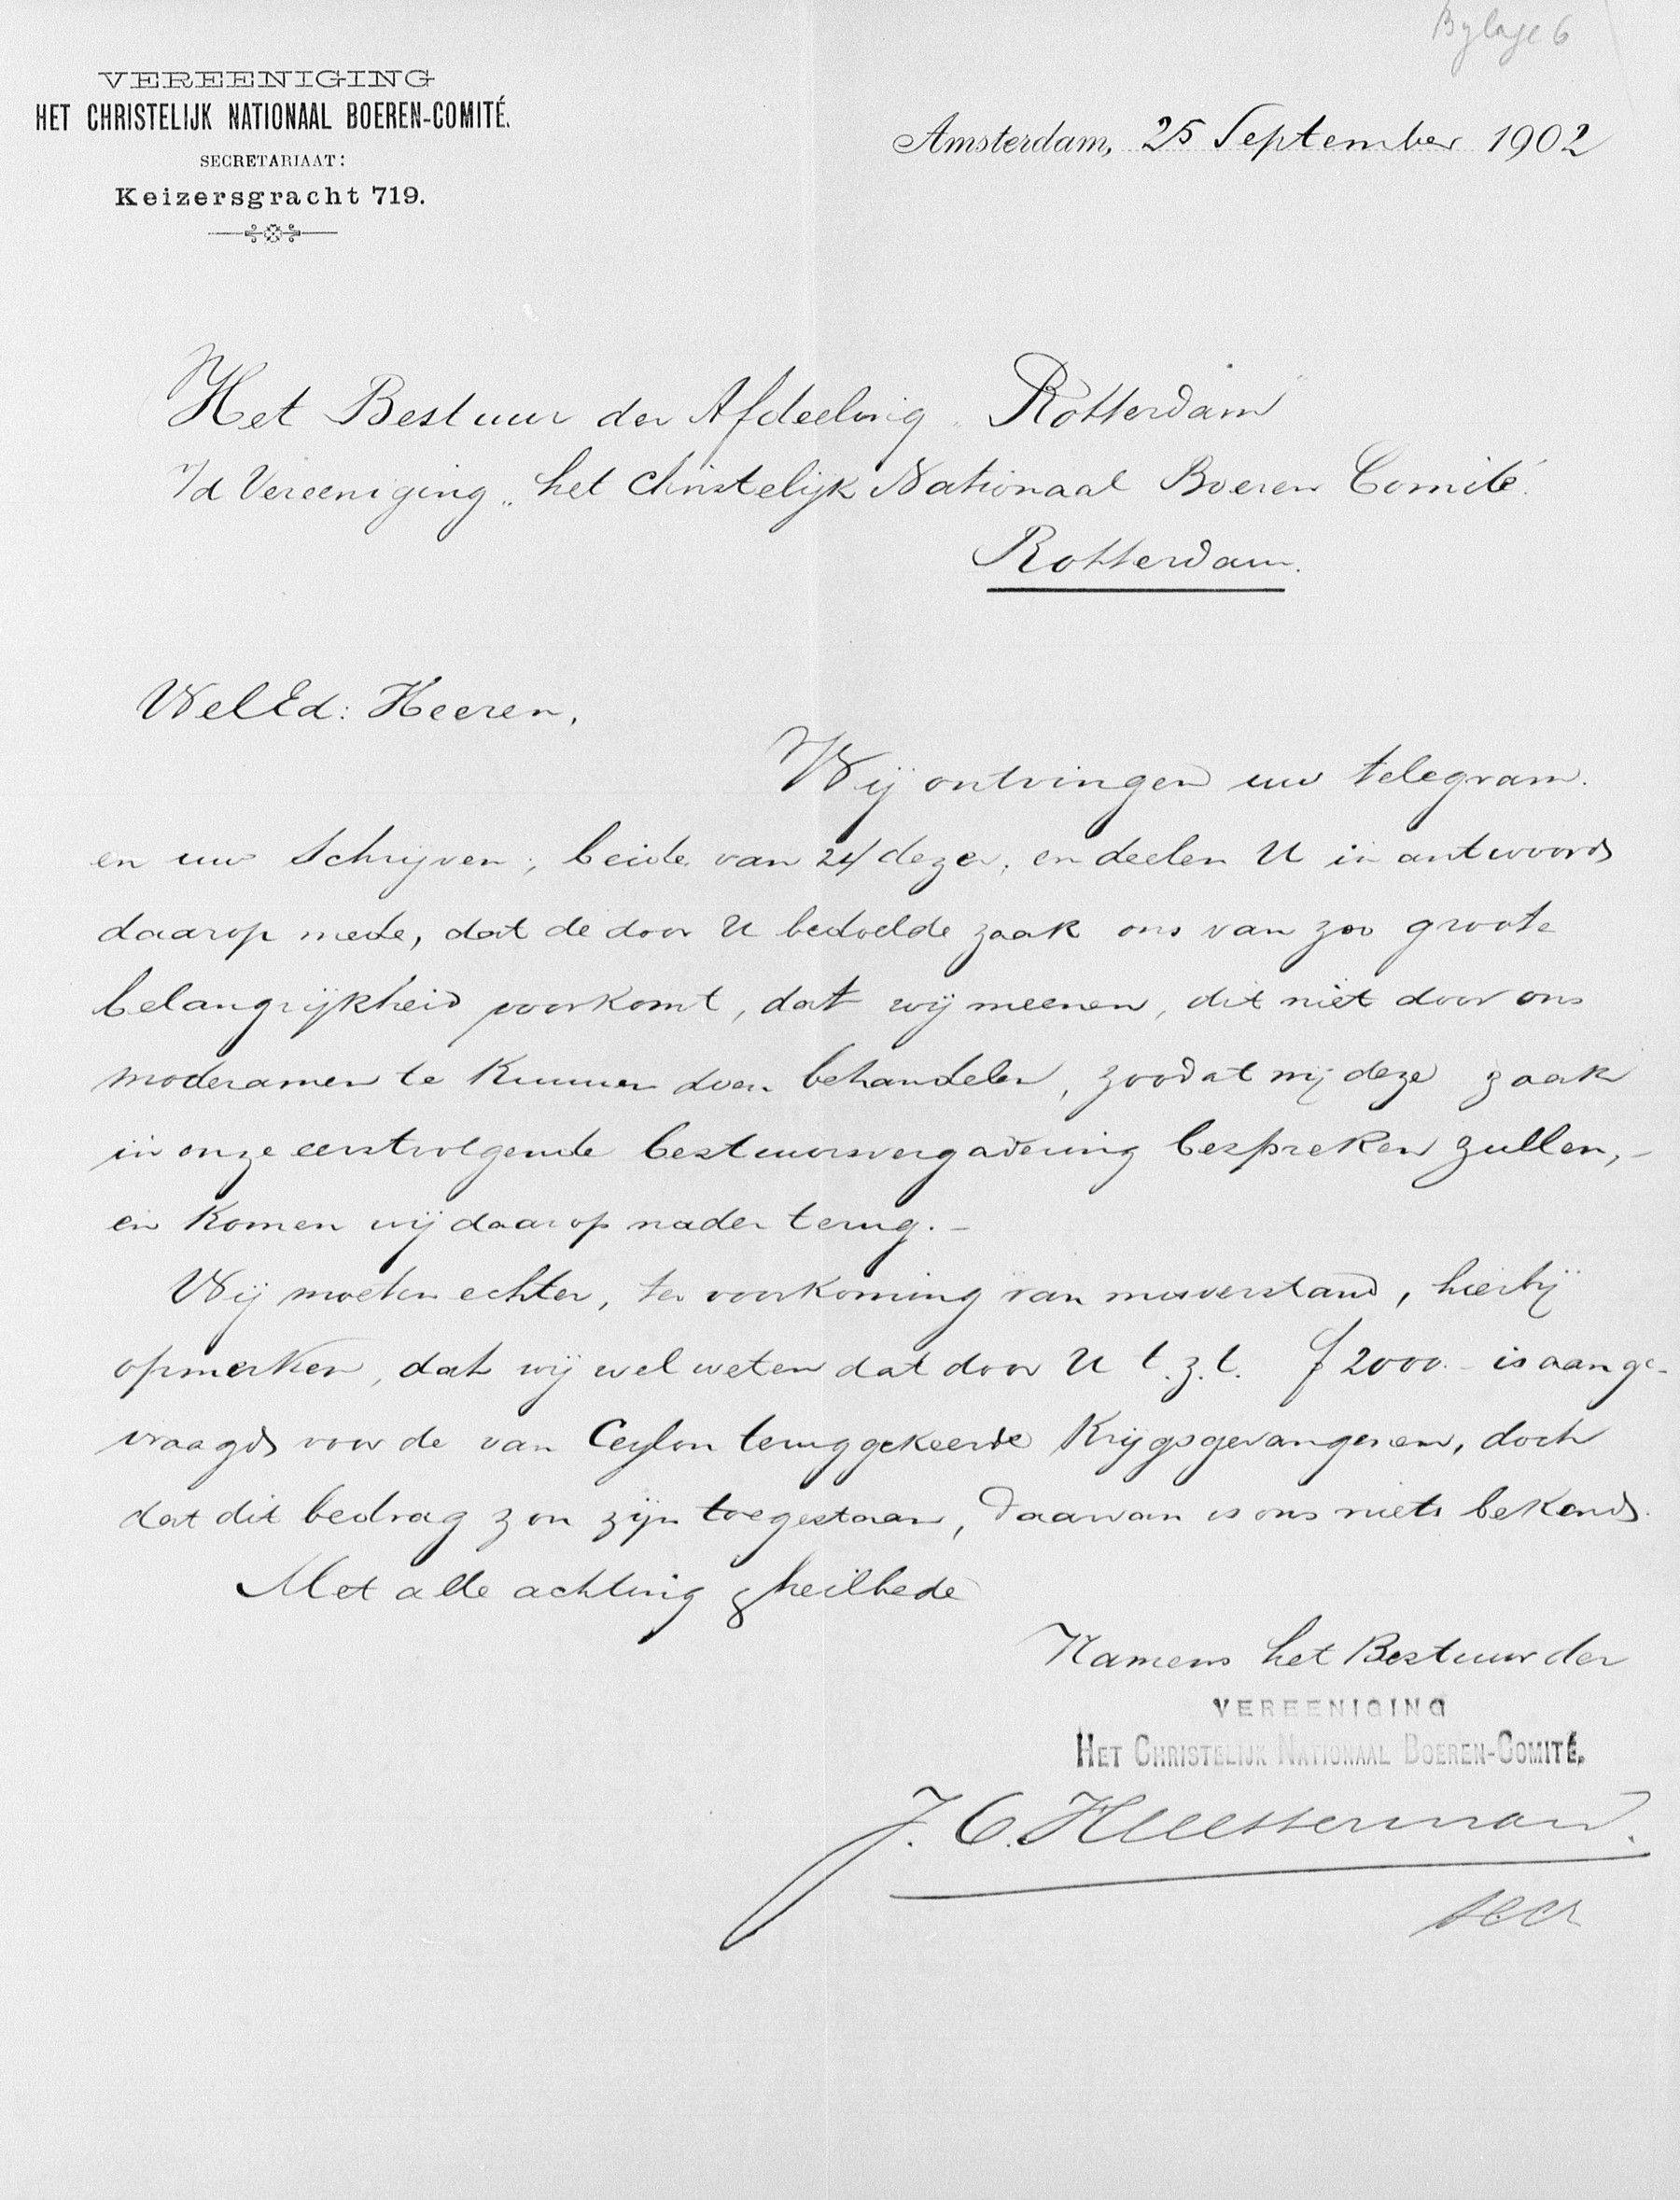 Bylage 6
VEREENIGING
HET CHRISTELIJK NATIONAAL BOEREN-COMITÉ.
SECRETARIAAT:
Keizersgracht 719.
Amsterdam, 25 September 1902
Het Bestuur der Afdeeling "Rotterdam"
v/d Vereeniging "het Christelijk Nationaal Boeren Comité.
Rotterdam.
WelEd: Heeren,
Wij ontvingen uw telegram.
en uw schrijven, beide van 24 dezer, en deelen U in antwoord
daarop mede, dat de door U bedoelde zaak ons van zoo groote
belangrijkheid voorkomt, dat wij meenen, dit niet door ons
moderamen te kunnen doen behandelen, zoodat wij deze zaak
in onze eerstvolgende bestuursvergadering bespreken zullen, -
en komen wij daarop nader terug. -
Wij moeten echter, ter voorkoming van misverstand, hierbij
opmerken, dat wij wel weten dat door U t.z.t. f 2000.- is aange-
vraagd voor de van Ceylon teruggekeerde Krijgsgevangenen, doch
dat dit bedrag zou zijn toegestaan, daarvan is ons niets bekend.
Met alle achting & heilbede
Namens het Bestuur der
VEREENIGING
HET CHRISTELIJK NATIONAAL BOEREN-COMITÉ.
J. C.
secr